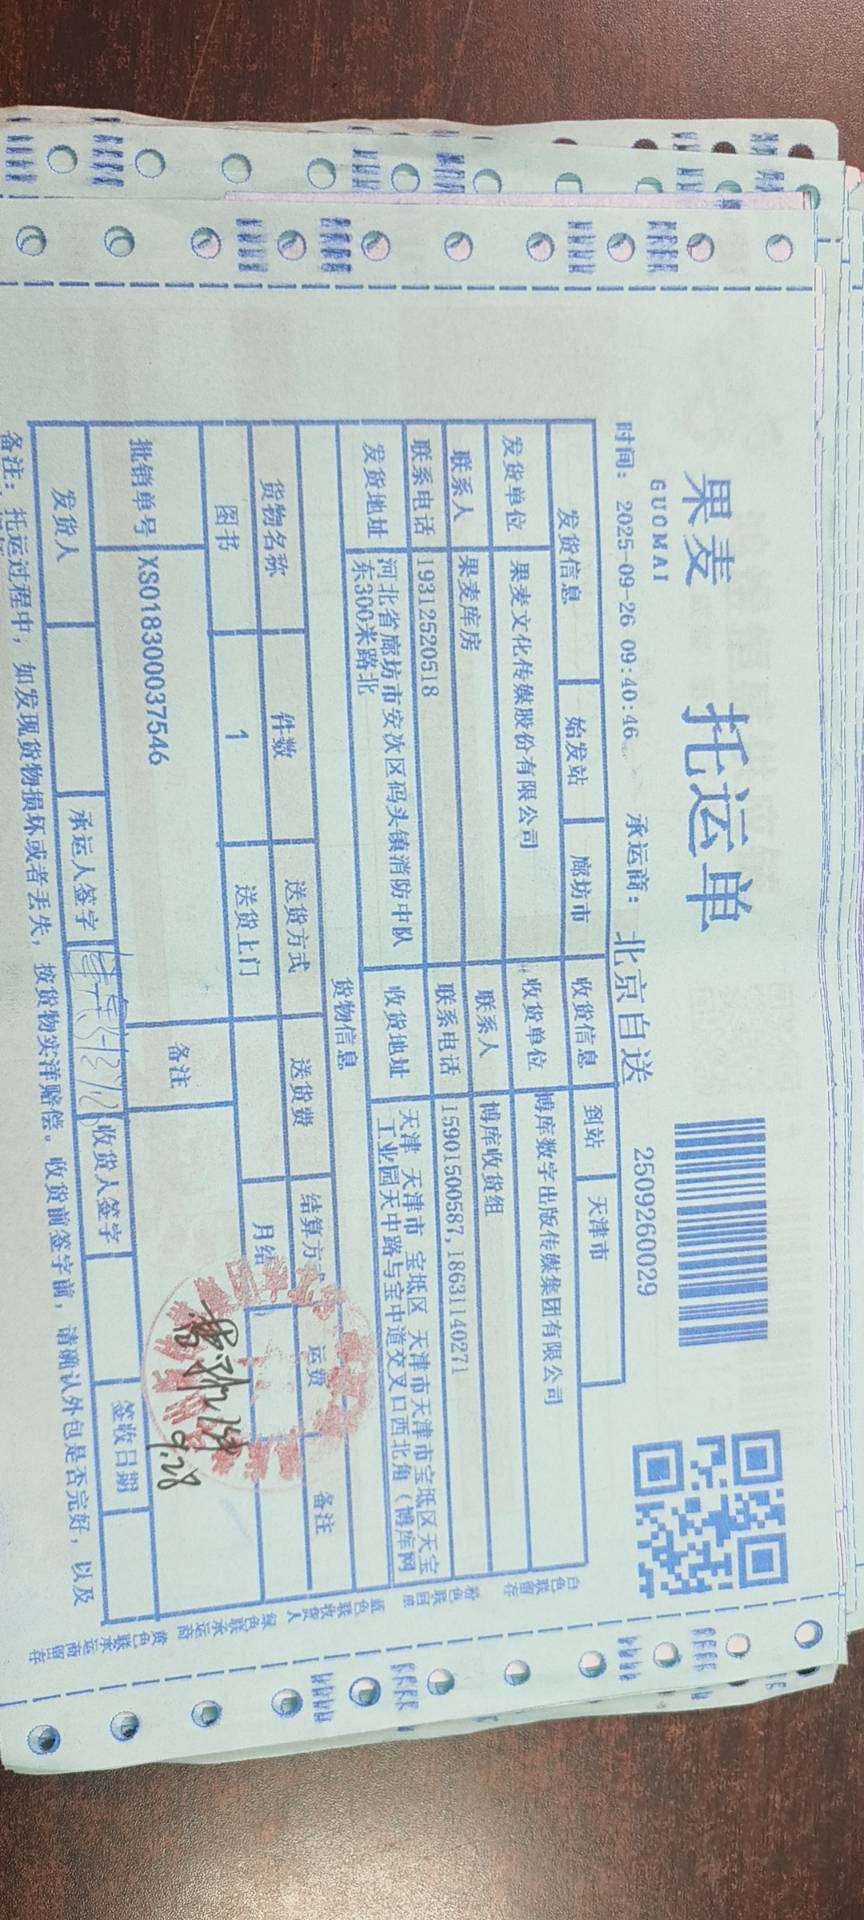 果麦 托运单
GUOMAI
时间: 2025-09-26 09:40:46 承运商: 北京自送 2509260029
发货信息 始发站 廊坊市 收货信息 到站 天津市
发货单位 果麦文化传媒股份有限公司 收货单位 博库数字出版传媒集团有限公司
联系人 果麦库房 联系人 博库收货组
联系电话 19312520518 联系电话 15901500587,18631140271
发货地址 河北省廊坊市安次区码头镇消防中队 收货地址 天津 天津市 宝坻区 天津市天津市宝坻区天宝
东300米路北 工业园天中路与宝中道交叉口西北角(博库网
货物信息
货物名称 件数 送货方式 送货费 结算方式 运费 备注
图书 1 送货上门 月结
批销单号 XS018300037546 备注
9.28
发货人 承运人签字 收货人签字 签收日期
备注: 托运过程中, 如发现货物损坏或者丢失, 按货物实洋赔偿。收货前签字前, 请确认外包是否完好, 以及
白色联留存
粉色联回单
蓝色联收货人
绿色联承运商
黄色联承运商留存